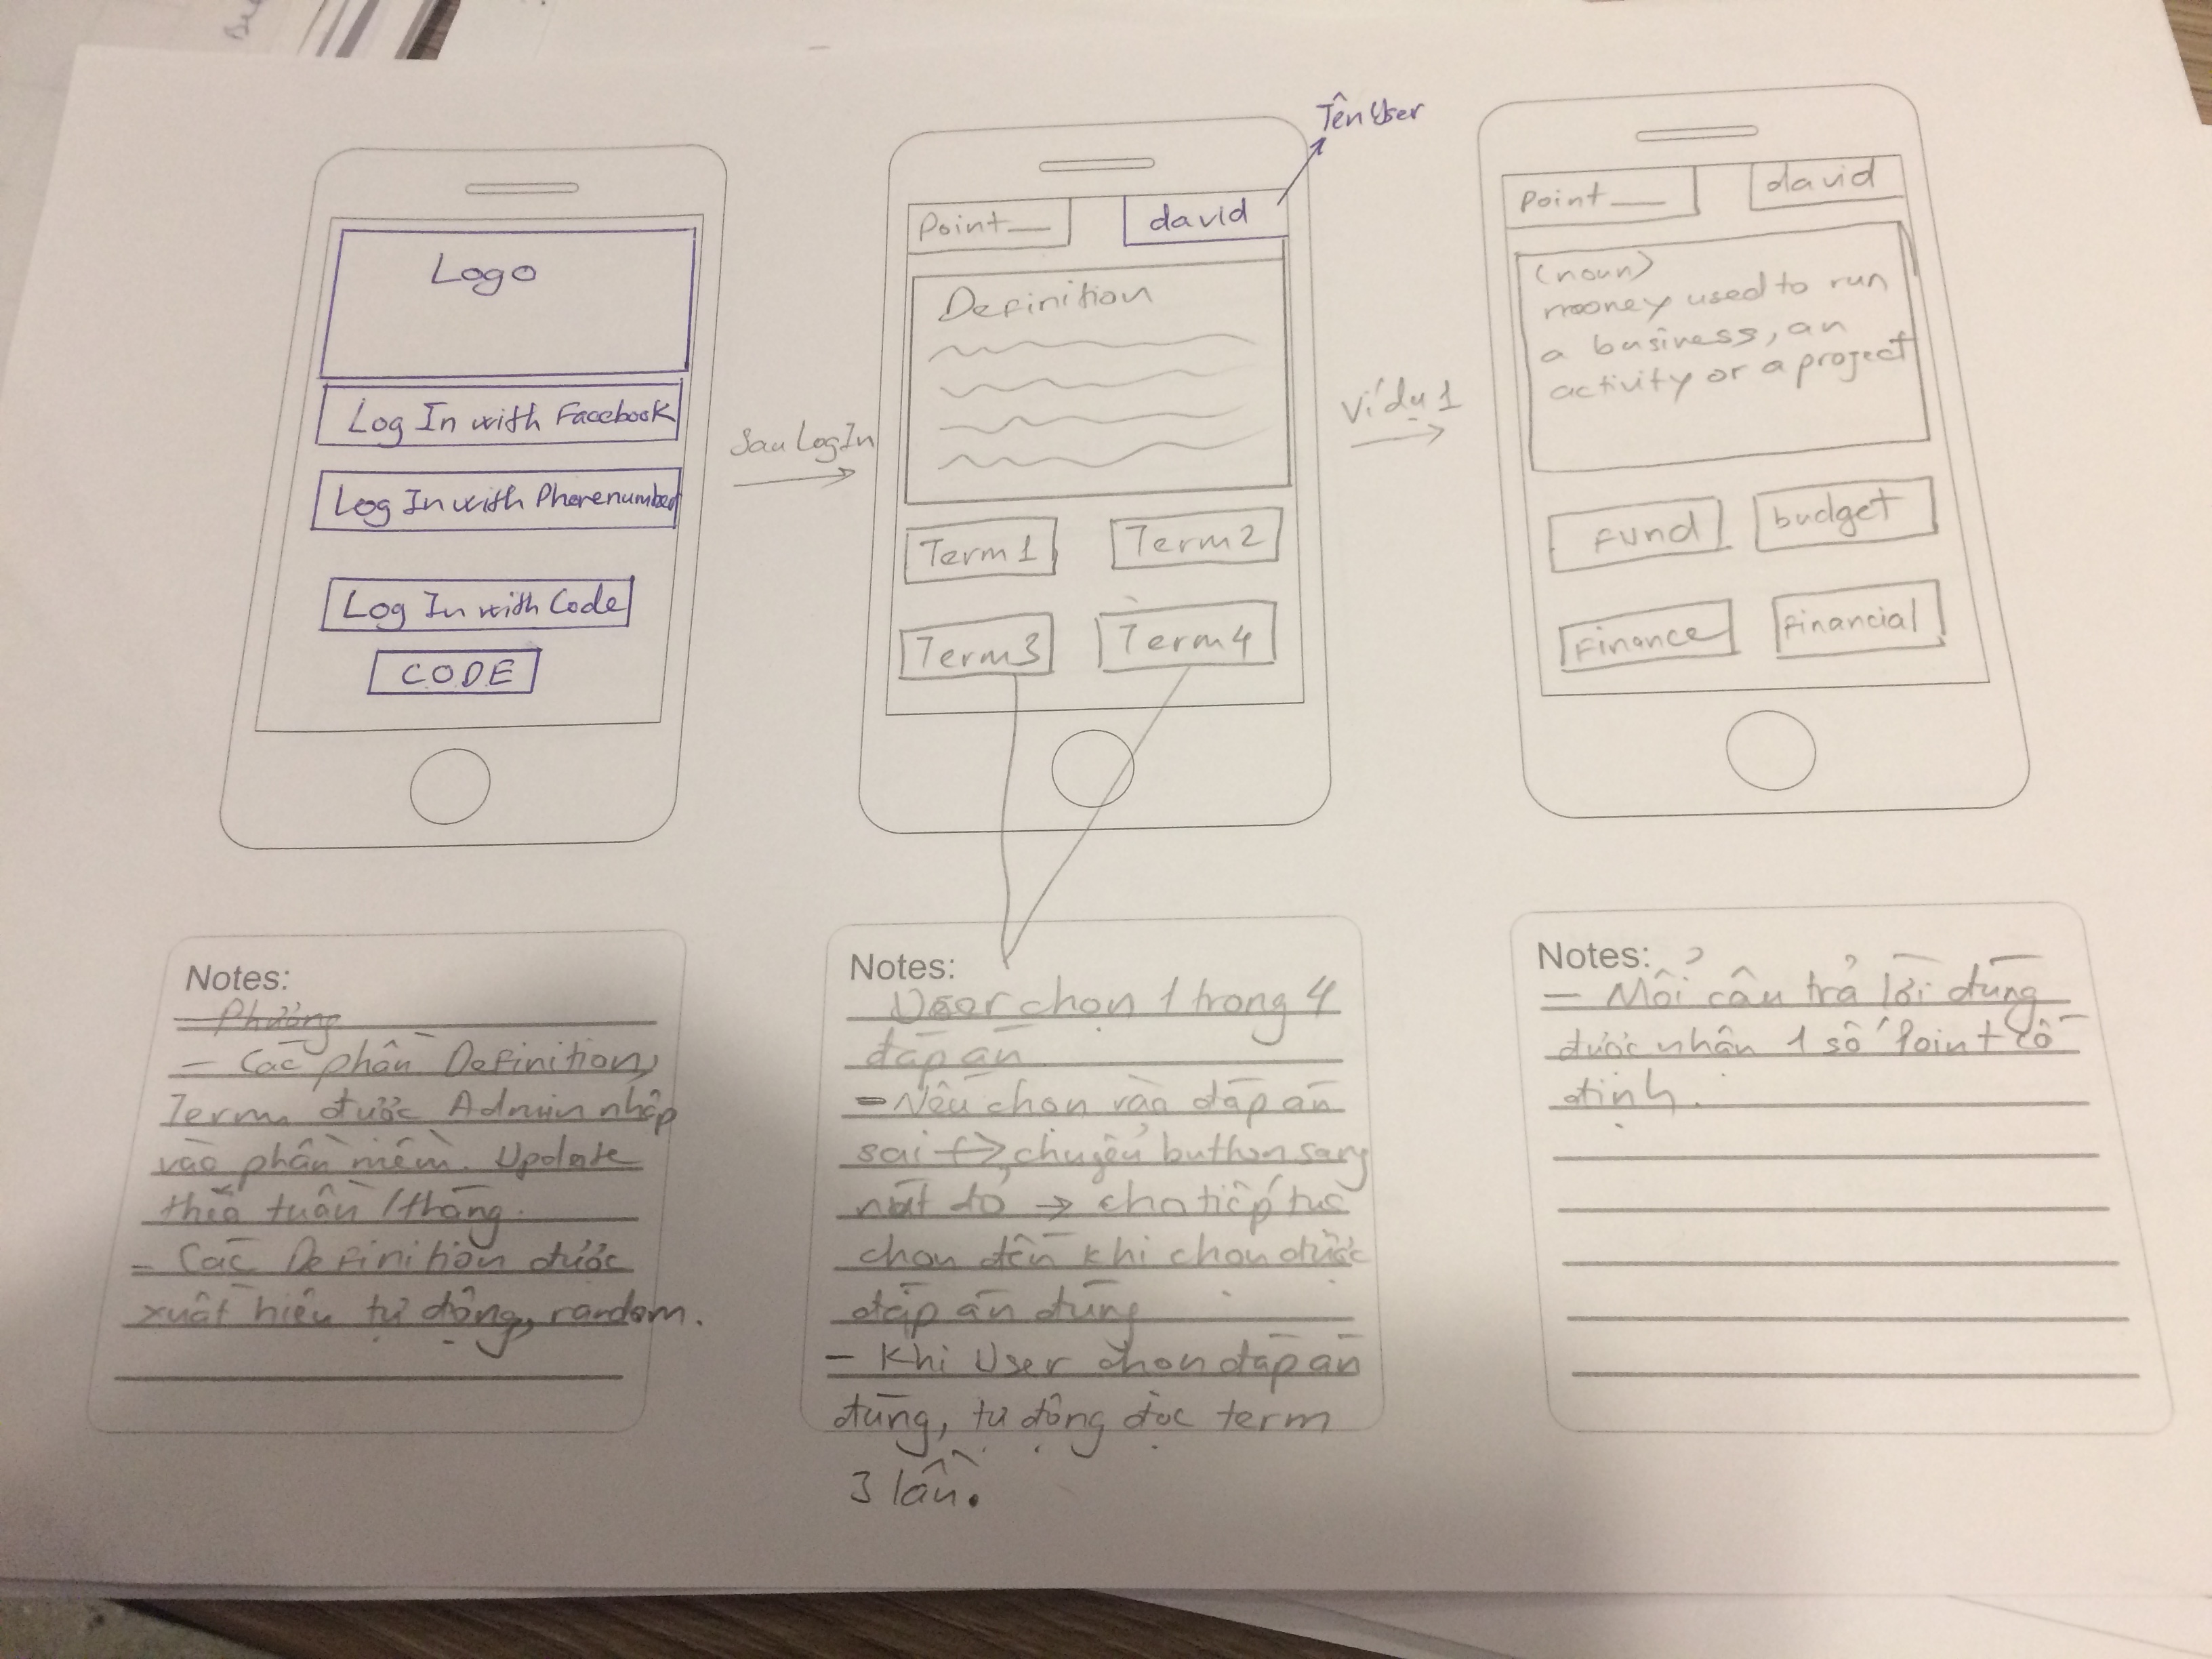 Logo
Log In with Facebook
Log In with Phonenumber
Log In with Code
CODE
Sau Log In
Tên User
Point
david
Definition
Term 1
Term 2
Term 3
Term 4
Ví dụ 1
Point
david
(noun)
mooney used to run
a business, an
activity or a project
Fund
budget
Finance
Financial
Notes:
- Phương
- Các phần Definition,
Term được Admin nhập
vào phần mềm. Update
theo tuần / tháng.
- Các Definition được
xuất hiện tự động, random.
Notes:
User chọn 1 trong 4
đáp án
- Nếu chọn vào đáp án
sai → chuyển button sang
nút đỏ → cho tiếp tục
chọn đến khi chọn được
đáp án đúng
- Khi User chọn đáp án
đúng, tự động đọc term
3 lần.
Notes:
- Mỗi câu trả lời đúng
được nhận 1 số Point cố
định.